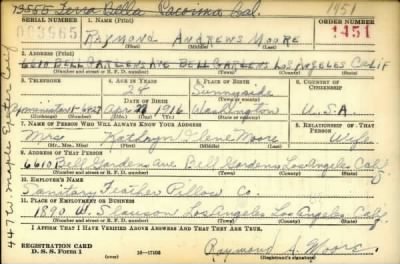 13555 Terra Bella Pacoima Cal. 1951
SERIAL NUMBER 1. NAME (Print) ORDER NUMBER
RAYMOND ANDREWS MOORE 1451
(First) (Middle) (Last)
2. ADDRESS (Print)
6610 BELL GARDENS AVE BELL GARDENS LOS ANGELES CALIF
(Number and street or R. F. D. number) (Town) (County) (State)
3. TELEPHONE 4. AGE IN YEARS 5. PLACE OF BIRTH 6. COUNTRY OF CITIZENSHIP
24 Sunnyside
DATE OF BIRTH
Apr 1916 Washington U.S.A.
(Exchange) (Number) (Mo.) (Day) (Yr.) (State or country)
7. NAME OF PERSON WHO WILL ALWAYS KNOW YOUR ADDRESS 8. RELATIONSHIP OF THAT PERSON
Mrs Kathryn Ilene Moore Wife
(Mr., Mrs., Miss) (First) (Middle) (Last)
9. ADDRESS OF THAT PERSON
6610 Bell Gardens Ave Bell Gardens Los Angeles Calif
(Number and street or R. F. D. number) (Town) (County) (State)
10. EMPLOYER'S NAME
Sanitary Feather Pillow Co.
11. PLACE OF EMPLOYMENT OR BUSINESS
1890 W. Slauson Los Angeles Los Angeles Calif
(Number and street or R. F. D. number) (Town) (County) (State)
I AFFIRM THAT I HAVE VERIFIED ABOVE ANSWERS AND THAT THEY ARE TRUE.
REGISTRATION CARD
D. S. S. Form 1 16—17105 Raymond A. Moore
(Registrant's signature)
447 W. Maple Exeter Calif